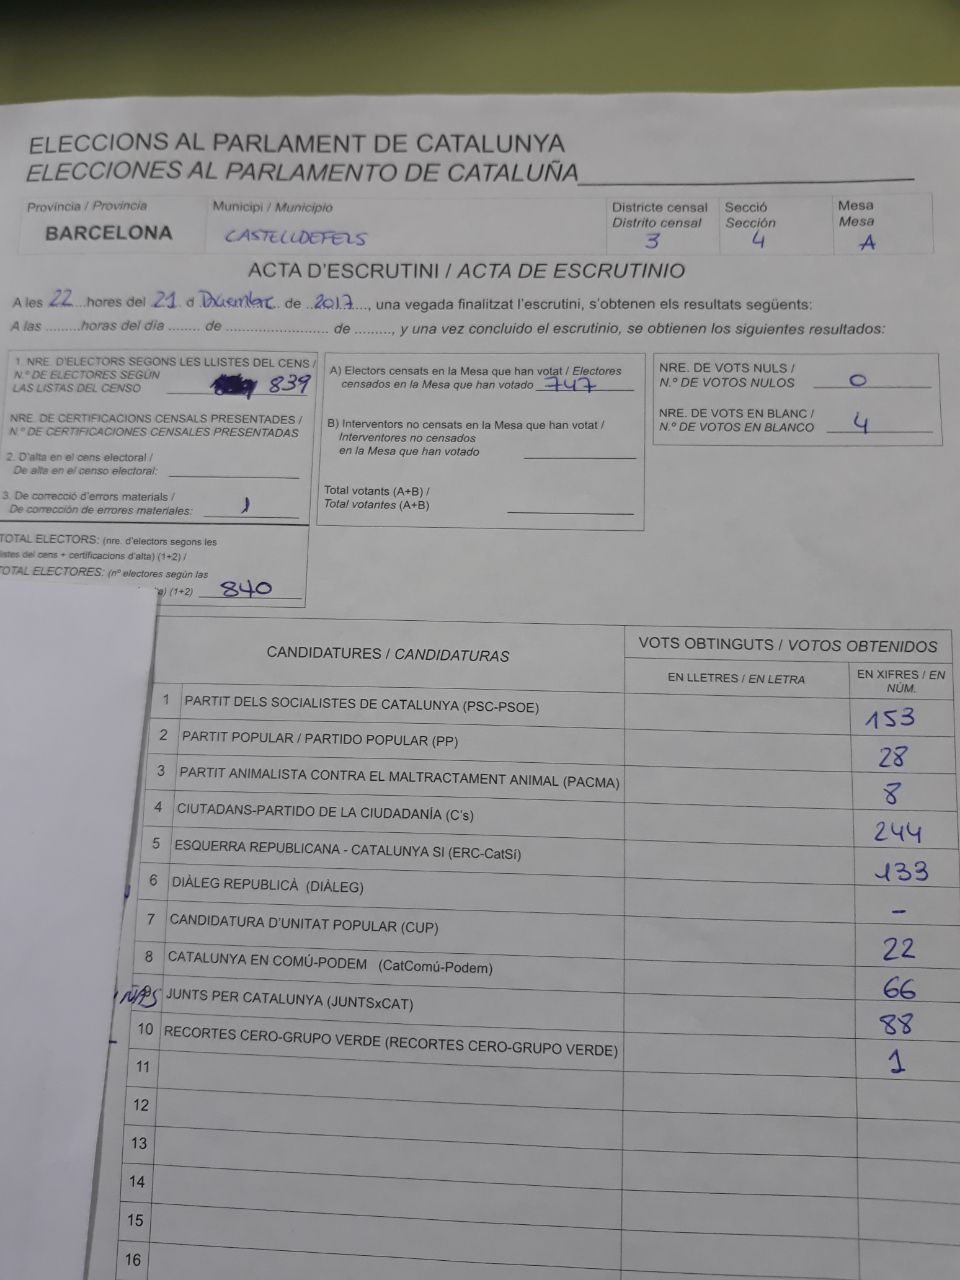 ELECCIONS AL PARLAMENT DE CATALUNYA
ELECCIONES AL PARLAMENTO DE CATALUÑA
Provincia / Provincia
BARCELONA
Municipi / Municipio
CASTELLDEFELS
Districte censal
Distrito censal
3
Secció
Sección
4
Mesa
Mesa
A
ACTA D'ESCRUTINI / ACTA DE ESCRUTINIO
A les 22 hores del 21 d Diciembre de 2017, una vegada finalitzat l'escrutini, s'obtenen els resultats següents:
A las .........horas del día ........ de .......................... de ........., y una vez concluido el escrutinio, se obtienen los siguientes resultados:
1. NRE. D'ELECTORS SEGONS LES LLISTES DEL CENS /
N.º DE ELECTORES SEGÚN
LAS LISTAS DEL CENSO 839
NRE. DE CERTIFICACIONS CENSALS PRESENTADES /
N.º DE CERTIFICACIONES CENSALES PRESENTADAS
2. D'alta en el cens electoral /
De alta en el censo electoral:
3. De correcció d'errors materials /
De corrección de errores materiales: 1
TOTAL ELECTORS: (nre. d'electors segons les
listes del cens + certificacions d'alta) (1+2) /
TOTAL ELECTORES: (nº electores según las
a) (1+2) 840
A) Electors censats en la Mesa que han votat / Electores
censados en la Mesa que han votado 747
B) Interventors no censats en la Mesa que han votat /
Interventores no censados
en la Mesa que han votado
Total votants (A+B) /
Total votantes (A+B)
NRE. DE VOTS NULS /
N.º DE VOTOS NULOS 0
NRE. DE VOTS EN BLANC /
N.º DE VOTOS EN BLANCO 4
CANDIDATURES / CANDIDATURAS
VOTS OBTINGUTS / VOTOS OBTENIDOS
EN LLETRES / EN LETRA
EN XIFRES / EN
NÚM.
1 PARTIT DELS SOCIALISTES DE CATALUNYA (PSC-PSOE) 153
2 PARTIT POPULAR / PARTIDO POPULAR (PP) 28
3 PARTIT ANIMALISTA CONTRA EL MALTRACTAMENT ANIMAL (PACMA) 8
4 CIUTADANS-PARTIDO DE LA CIUDADANÍA (C's) 244
5 ESQUERRA REPUBLICANA - CATALUNYA SI (ERC-CatSí) 133
6 DIÀLEG REPUBLICÀ (DIÀLEG) -
7 CANDIDATURA D'UNITAT POPULAR (CUP) 22
8 CATALUNYA EN COMÚ-PODEM (CatComú-Podem) 66
9 JUNTS PER CATALUNYA (JUNTSxCAT) 88
10 RECORTES CERO-GRUPO VERDE (RECORTES CERO-GRUPO VERDE) 1
11
12
13
14
15
16